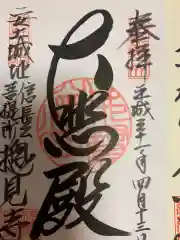 奉拝 平成三十一年四月十三日
大照殿
安土城址 信長公菩提所 摠見寺